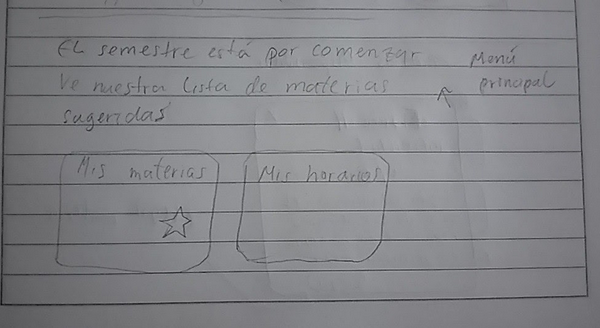 El semestre está por comenzar
Ve nuestra lista de materias
sugeridas
Menú
principal
Mis materias
Mis horarios